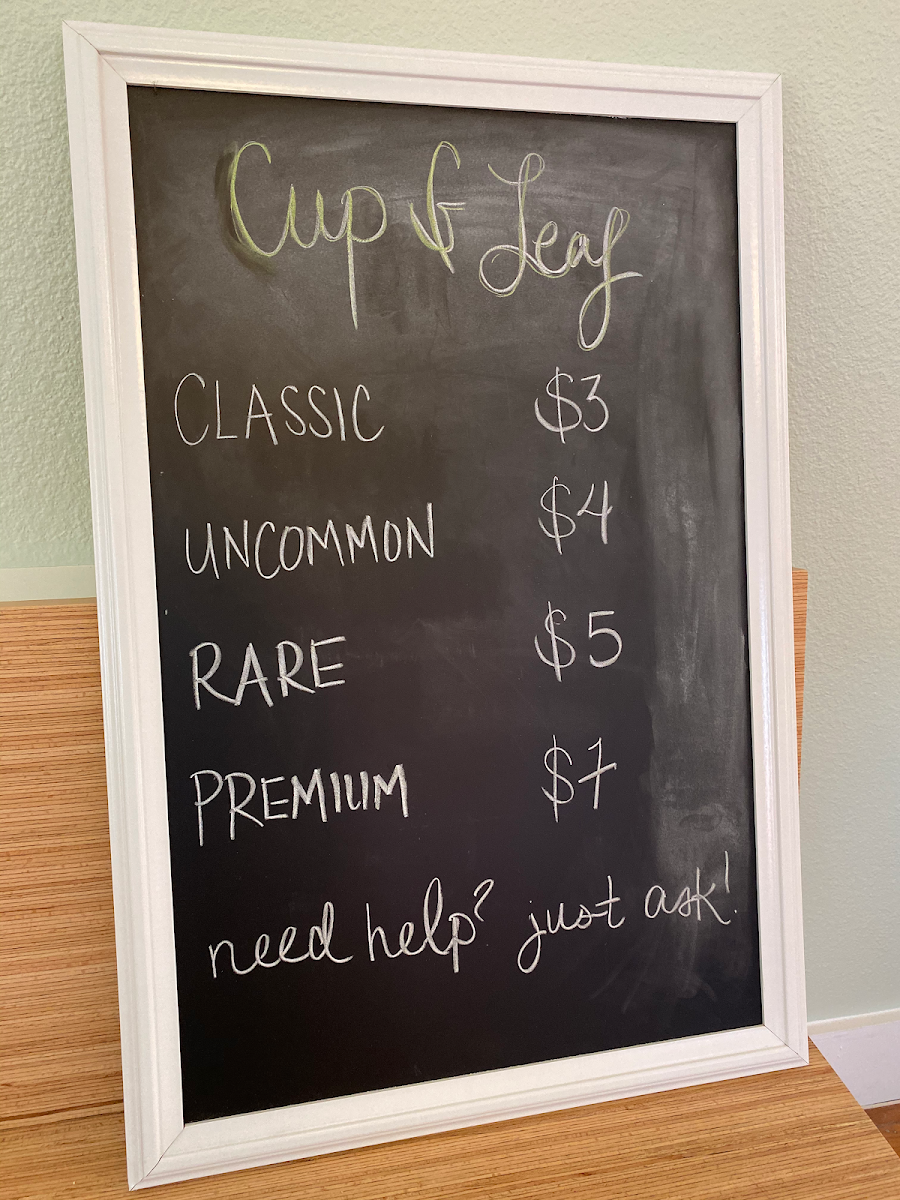 Cup & Leaf
CLASSIC $3
UNCOMMON $4
RARE $5
PREMIUM $7
need help? just ask!